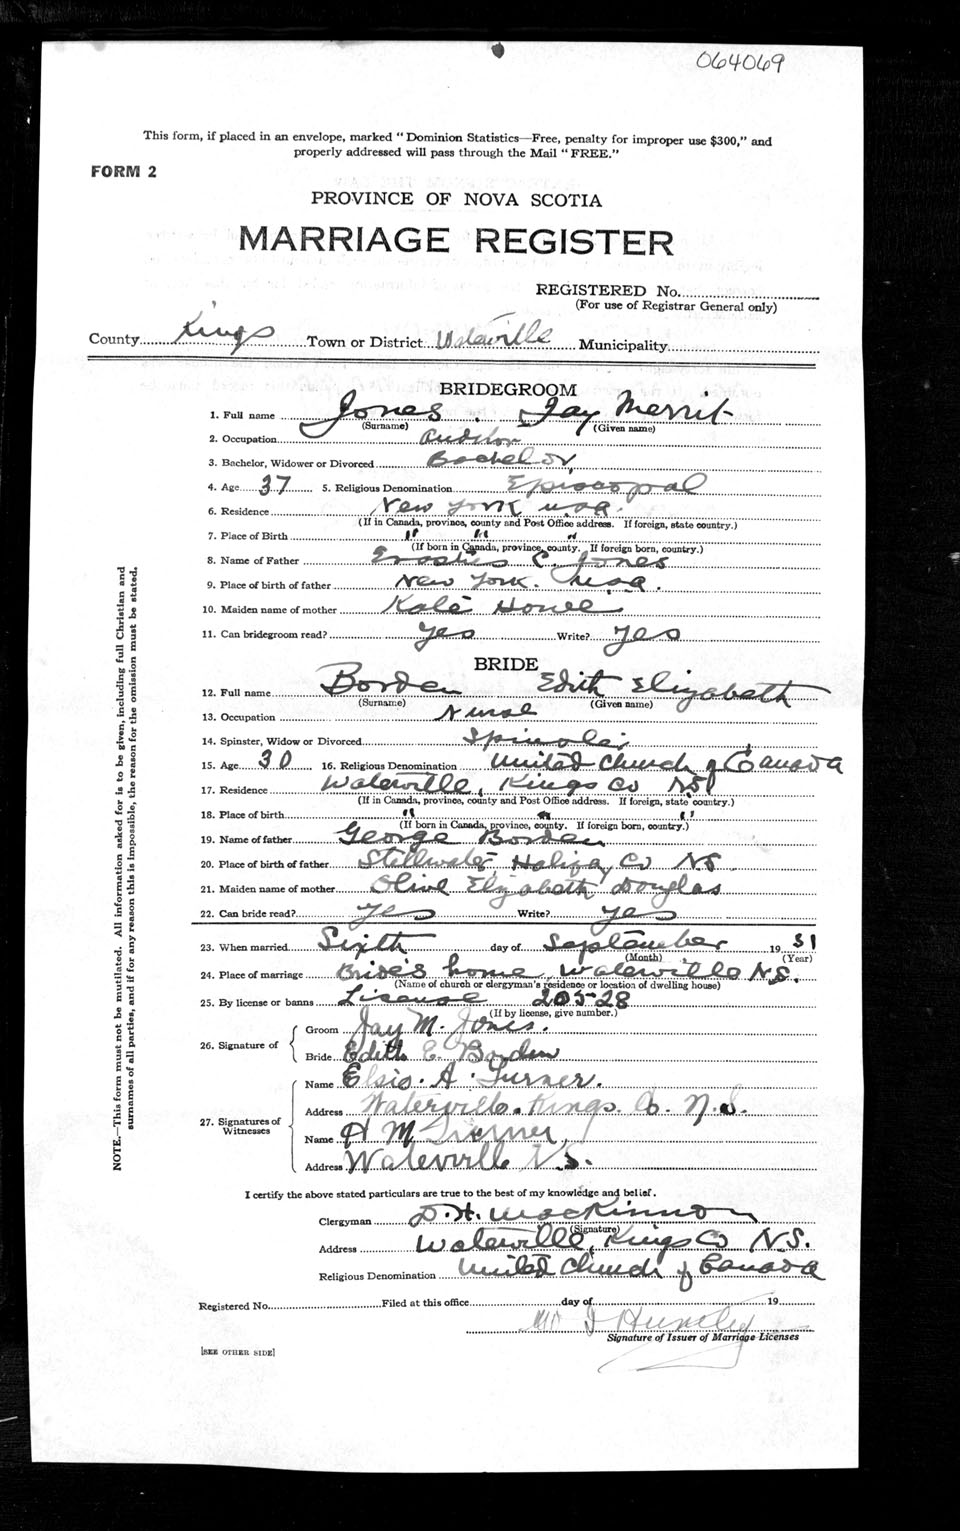 064069
This form, if placed in an envelope, marked "Dominion Statistics—Free, penalty for improper use $300," and
properly addressed will pass through the Mail "FREE."
FORM 2
PROVINCE OF NOVA SCOTIA
MARRIAGE REGISTER
REGISTERED No.
(For use of Registrar General only)
County Kings Town or District Waterville Municipality
BRIDEGROOM
1. Full name Jones, Jay Merrit
(Surname) (Given name)
2. Occupation Auditor
3. Bachelor, Widower or Divorced Bachelor
4. Age 37 5. Religious Denomination Episcopal
6. Residence New York U.S.A.
(If in Canada, province, county and Post Office address. If foreign, state country.)
7. Place of Birth " " "
(If born in Canada, province, county. If foreign born, country.)
8. Name of Father Erastus C. Jones
9. Place of birth of father New York. U.S.A.
10. Maiden name of mother Kate Howe
11. Can bridegroom read? Yes Write? Yes
BRIDE
12. Full name Borden Edith Elizabeth
(Surname) (Given name)
13. Occupation Nurse
14. Spinster, Widow or Divorced Spinster
15. Age 30 16. Religious Denomination United Church of Canada
17. Residence Waterville, Kings Co NS
(If in Canada, province, county and Post Office address. If foreign, state country.)
18. Place of birth " " "
(If born in Canada, province, county. If foreign born, country.)
19. Name of father George Borden
20. Place of birth of father Stillwater Halifax Co NS
21. Maiden name of mother Olive Elizabeth Douglas
22. Can bride read? Yes Write? Yes
23. When married Sixth day of September 1931
(Month) (Year)
24. Place of marriage Bride's home, Waterville N.S.
(Name of church or clergyman's residence or location of dwelling house)
25. By license or banns License 205-28
(If by license, give number.)
26. Signature of
Groom Jay M. Jones.
Bride Edith E. Borden
27. Signatures of Witnesses
Name Elsie A. Turner.
Address Waterville. Kings. Co. N.S.
Name H M Turner
Address Waterville N.S.
I certify the above stated particulars are true to the best of my knowledge and belief.
Clergyman D. H. MacKinnon
(Signature)
Address Waterville, Kings Co N.S.
Religious Denomination United Church of Canada
Registered No. Filed at this office day of 19
Huntley
Signature of Issuer of Marriage Licenses
[SEE OTHER SIDE]
NOTE.—This form must not be mutilated. All information asked for is to be given, including full Christian and
surnames of all parties, and if for any reason this is impossible, the reason for the omission must be stated.